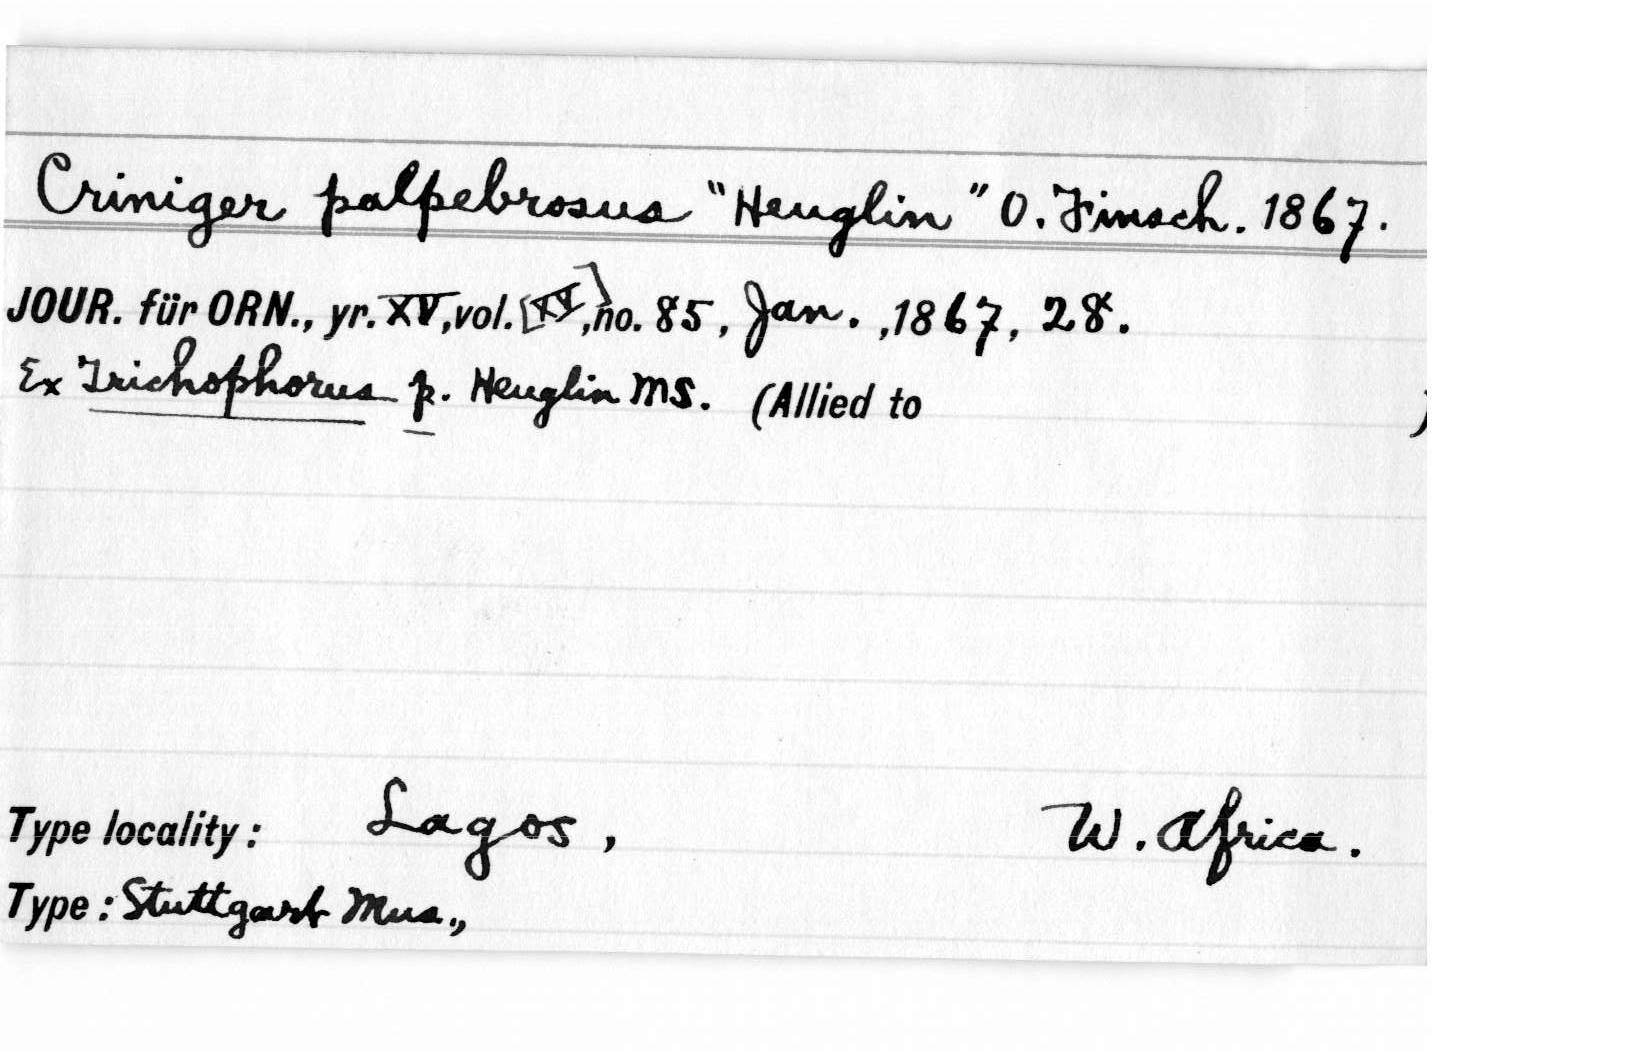 Criniger palpebrosus "Heuglin" O. Finsch. 1867.
JOUR. für ORN., yr. XV, vol. [XV], no. 85, Jan. , 1867, 28.
Ex Trichophorus p. Heuglin MS. (Allied to )
Type locality: Lagos, W. Africa.
Type: Stuttgart Mus.,